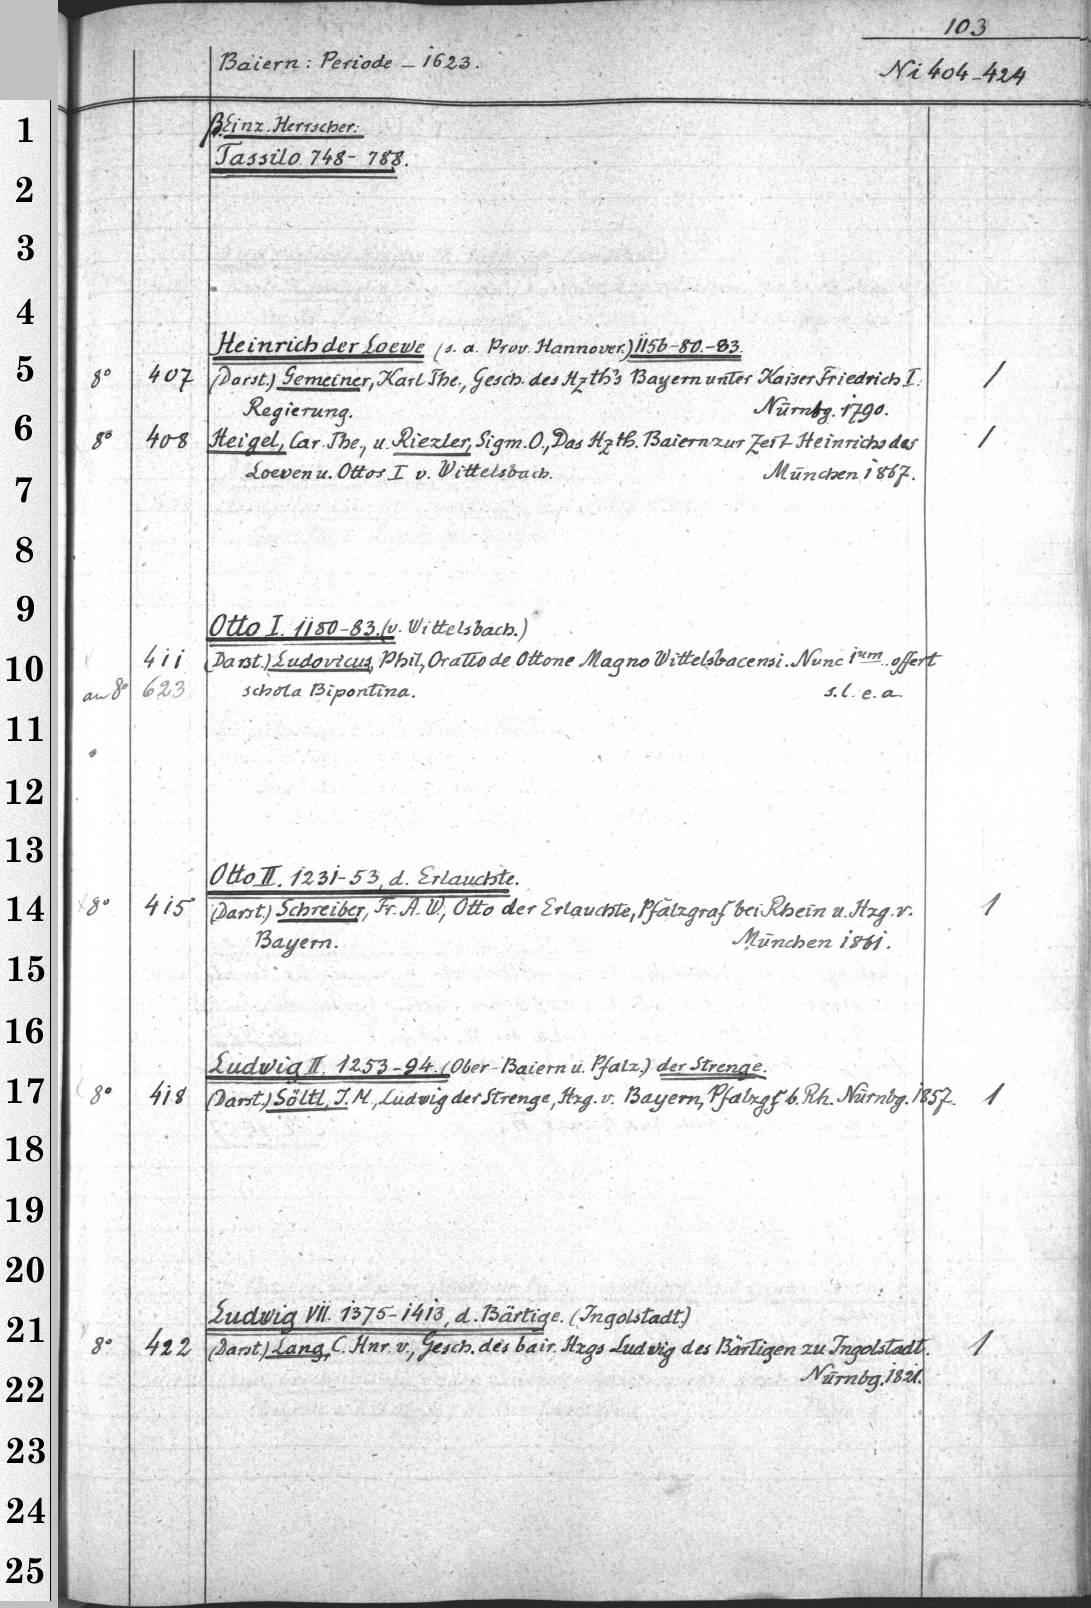 103
Baiern: Periode – 1623.
Ni 404-424
1
β. Einz. Herrscher:
Tassilo 748 - 788.
2
3
4
Heinrich der Loewe (s. a. Prov. Hannover.) 1156-80.-83.
5 8° 407 (Darst.) Gemeiner, Karl The., Gesch. des Hzth's Bayern unter Kaiser Friedrich I. /
Regierung. Nürnbg. 1790.
6 8° 408 Heigel, Car. The., u. Riezler, Sigm. O., Das Hzth. Baiern zur Zeit Heinrichs des /
Loewen u. Ottos I v. Wittelsbach. München 1867.
7
8
9
Otto I. 1180-83. (v. Wittelsbach.)
10 411 (Darst.) Ludovicus, Phil., Oratio de Ottone Magno Wittelsbacensi. Nunc 1um offert
an 8° 623 schola Bipontina. s. l. e. a.
11
12
13
Otto II. 1231-53, d. Erlauchte.
14 8° 415 (Darst.) Schreiber, Fr. A. W., Otto der Erlauchte, Pfalzgraf bei Rhein u. Hzg. v. 1
Bayern. München 1861.
15
16
Ludwig II. 1253-94. (Ober-Baiern u. Pfalz.) der Strenge.
17 8° 418 (Darst.) Söltl, J. M., Ludwig der Strenge, Hzg. v. Bayern, Pfalzgf b. Rh. Nürnbg. 1857. 1
18
19
20
Ludwig VII. 1375-1413, d. Bärtige. (Ingolstadt.)
21 8° 422 (Darst.) Lang, C. Hnr. v., Gesch. des bair. Hzgs Ludwig des Bärtigen zu Ingolstadt. 1
22 Nürnbg. 1821.
23
24
25